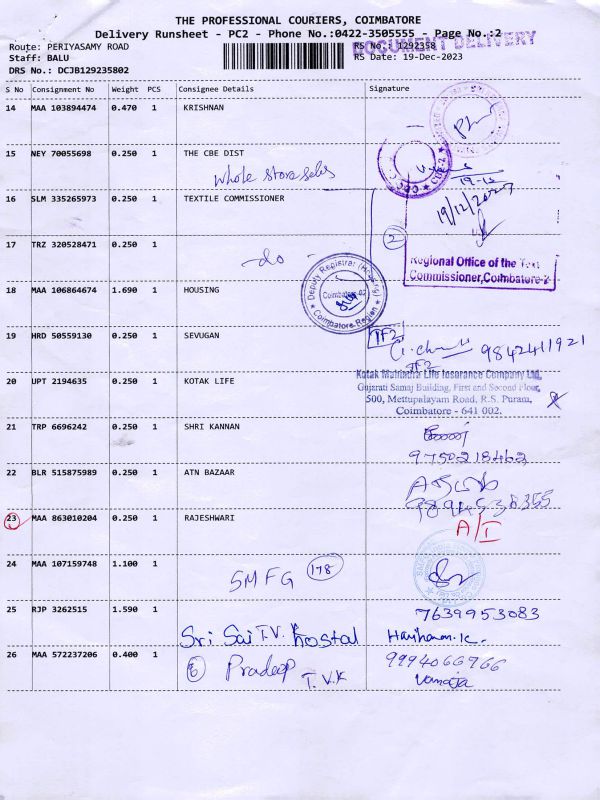 THE PROFESSIONAL COURIERS, COIMBATORE
Delivery Runsheet - PC2 - Phone No.:0422-3505555 - Page No.:2
DOCUMENT DELIVERY
Route: PERIYASAMY ROAD RS No.: 1292358
Staff: BALU RS Date: 19-Dec-2023
DRS No.: DCJB129235802
S No Consignment No Weight PCS Consignee Details Signature
14 MAA 103894474 0.470 1 KRISHNAN
15 NEY 70055698 0.250 1 THE CBE DIST
whole store sales
19-12
16 SLM 335265973 0.250 1 TEXTILE COMMISSIONER
19/12/2023
17 TRZ 320528471 0.250 1
-do- 2
Regional Office of the
Commissioner, Coimbatore-2
18 MAA 106864674 1.690 1 HOUSING
Deputy Registrar (Housing)
Coimbatore-02
Coimbatore Region
19 HRD 50559130 0.250 1 SEVUGAN
TF2 9842411921
TF2
20 UPT 2194635 0.250 1 KOTAK LIFE
Kotak Mahindra Life Insurance Company Ltd,
Gujarati Samaj Building, First and Second Floor,
500, Mettupalayam Road, R.S. Puram,
Coimbatore - 641 002.
21 TRP 6696242 0.250 1 SHRI KANNAN
9750218462
22 BLR 515875989 0.250 1 ATN BAZAAR
9894538355
23 MAA 863010204 0.250 1 RAJESHWARI
A/I
24 MAA 107159748 1.100 1
SMFG 178
25 RJP 3262515 1.590 1
7639953083
Sri Sai T.V.K hostal Hariharan.K.
26 MAA 572237206 0.400 1
6 Pradeep T.V.K 9994066766
Vanaja